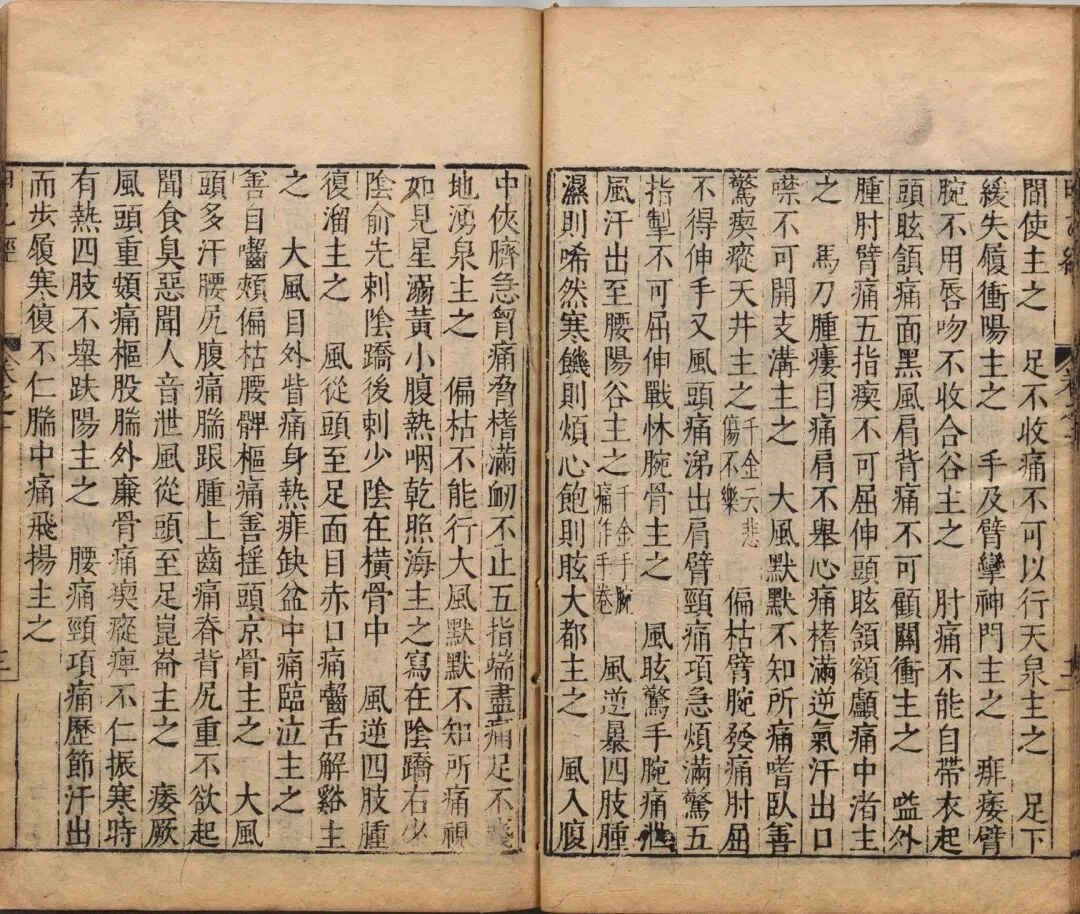 間使主之 足不收痛不可以行天泉主之 足下
緩失履衝陽主之 手及臂攣神門主之 痱痿臂
腕不用唇吻不收合谷主之 肘痛不能自帶衣起
頭眩頷痛面黑風肩背痛不可顧關衝主之 嗌外
腫肘臂痛五指瘈不可屈伸頭眩頷額顱痛中渚主
之 馬刀腫瘻目痛肩不舉心痛榰滿逆氣汗出口
噤不可開支溝主之 大風默默不知所痛嗜臥善
驚瘈瘲天井主之千金云悲傷不樂 偏枯臂腕發痛肘屈
不得伸手又風頭痛涕出肩臂頸痛項急煩滿驚五
指掣不可屈伸戰怵腕骨主之 風眩驚手腕痛泄
風汗出至腰陽谷主之千金手腕痛作手卷 風逆暴四肢腫
濕則唏然寒饑則煩心飽則眩大都主之 風入腹
中俠臍急胷痛脅榰滿衂不止五指端盡痛足不踐
地湧泉主之 偏枯不能行大風默默不知所痛視
如見星溺黃小腹熱咽乾照海主之寫在陰蹻右少
陰俞先刺陰蹻後刺少陰在橫骨中 風逆四肢腫
復溜主之 風從頭至足面目赤口痛嚙舌解谿主
之 大風目外眥痛身熱痱缺盆中痛臨泣主之
善自嚙頰偏枯腰髀樞痛善搖頭京骨主之 大風
頭多汗腰尻腹痛腨跟腫上齒痛脊背尻重不欲起
聞食臭惡聞人音泄風從頭至足崑崙主之 痿厥
風頭重頞痛樞股腨外廉骨痛瘈瘲痺不仁振寒時
有熱四肢不舉趺陽主之 腰痛頸項痛歷節汗出
而步履寒復不仁腨中痛飛揚主之